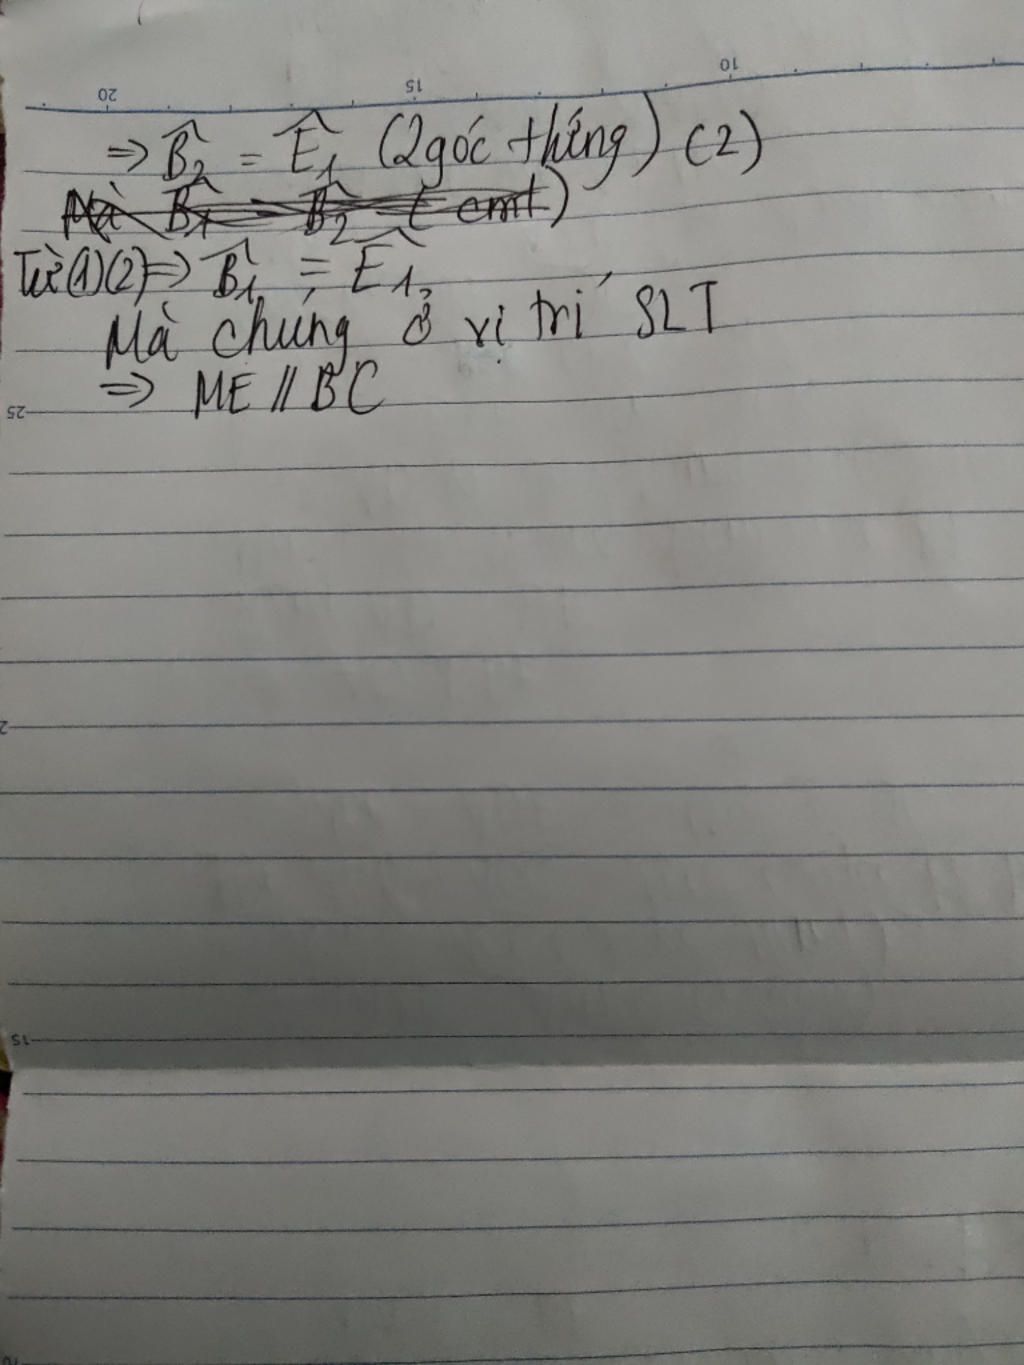 20 15 10
=> B̂₂ = Ê₁ (2 góc tứng) (2)
Mà B̂₁ = B̂₂ (cmt)
Từ (1)(2) => B̂₁ = Ê₁,
Mà chúng ở vị trí SLT
=> ME // BC
25
2
15